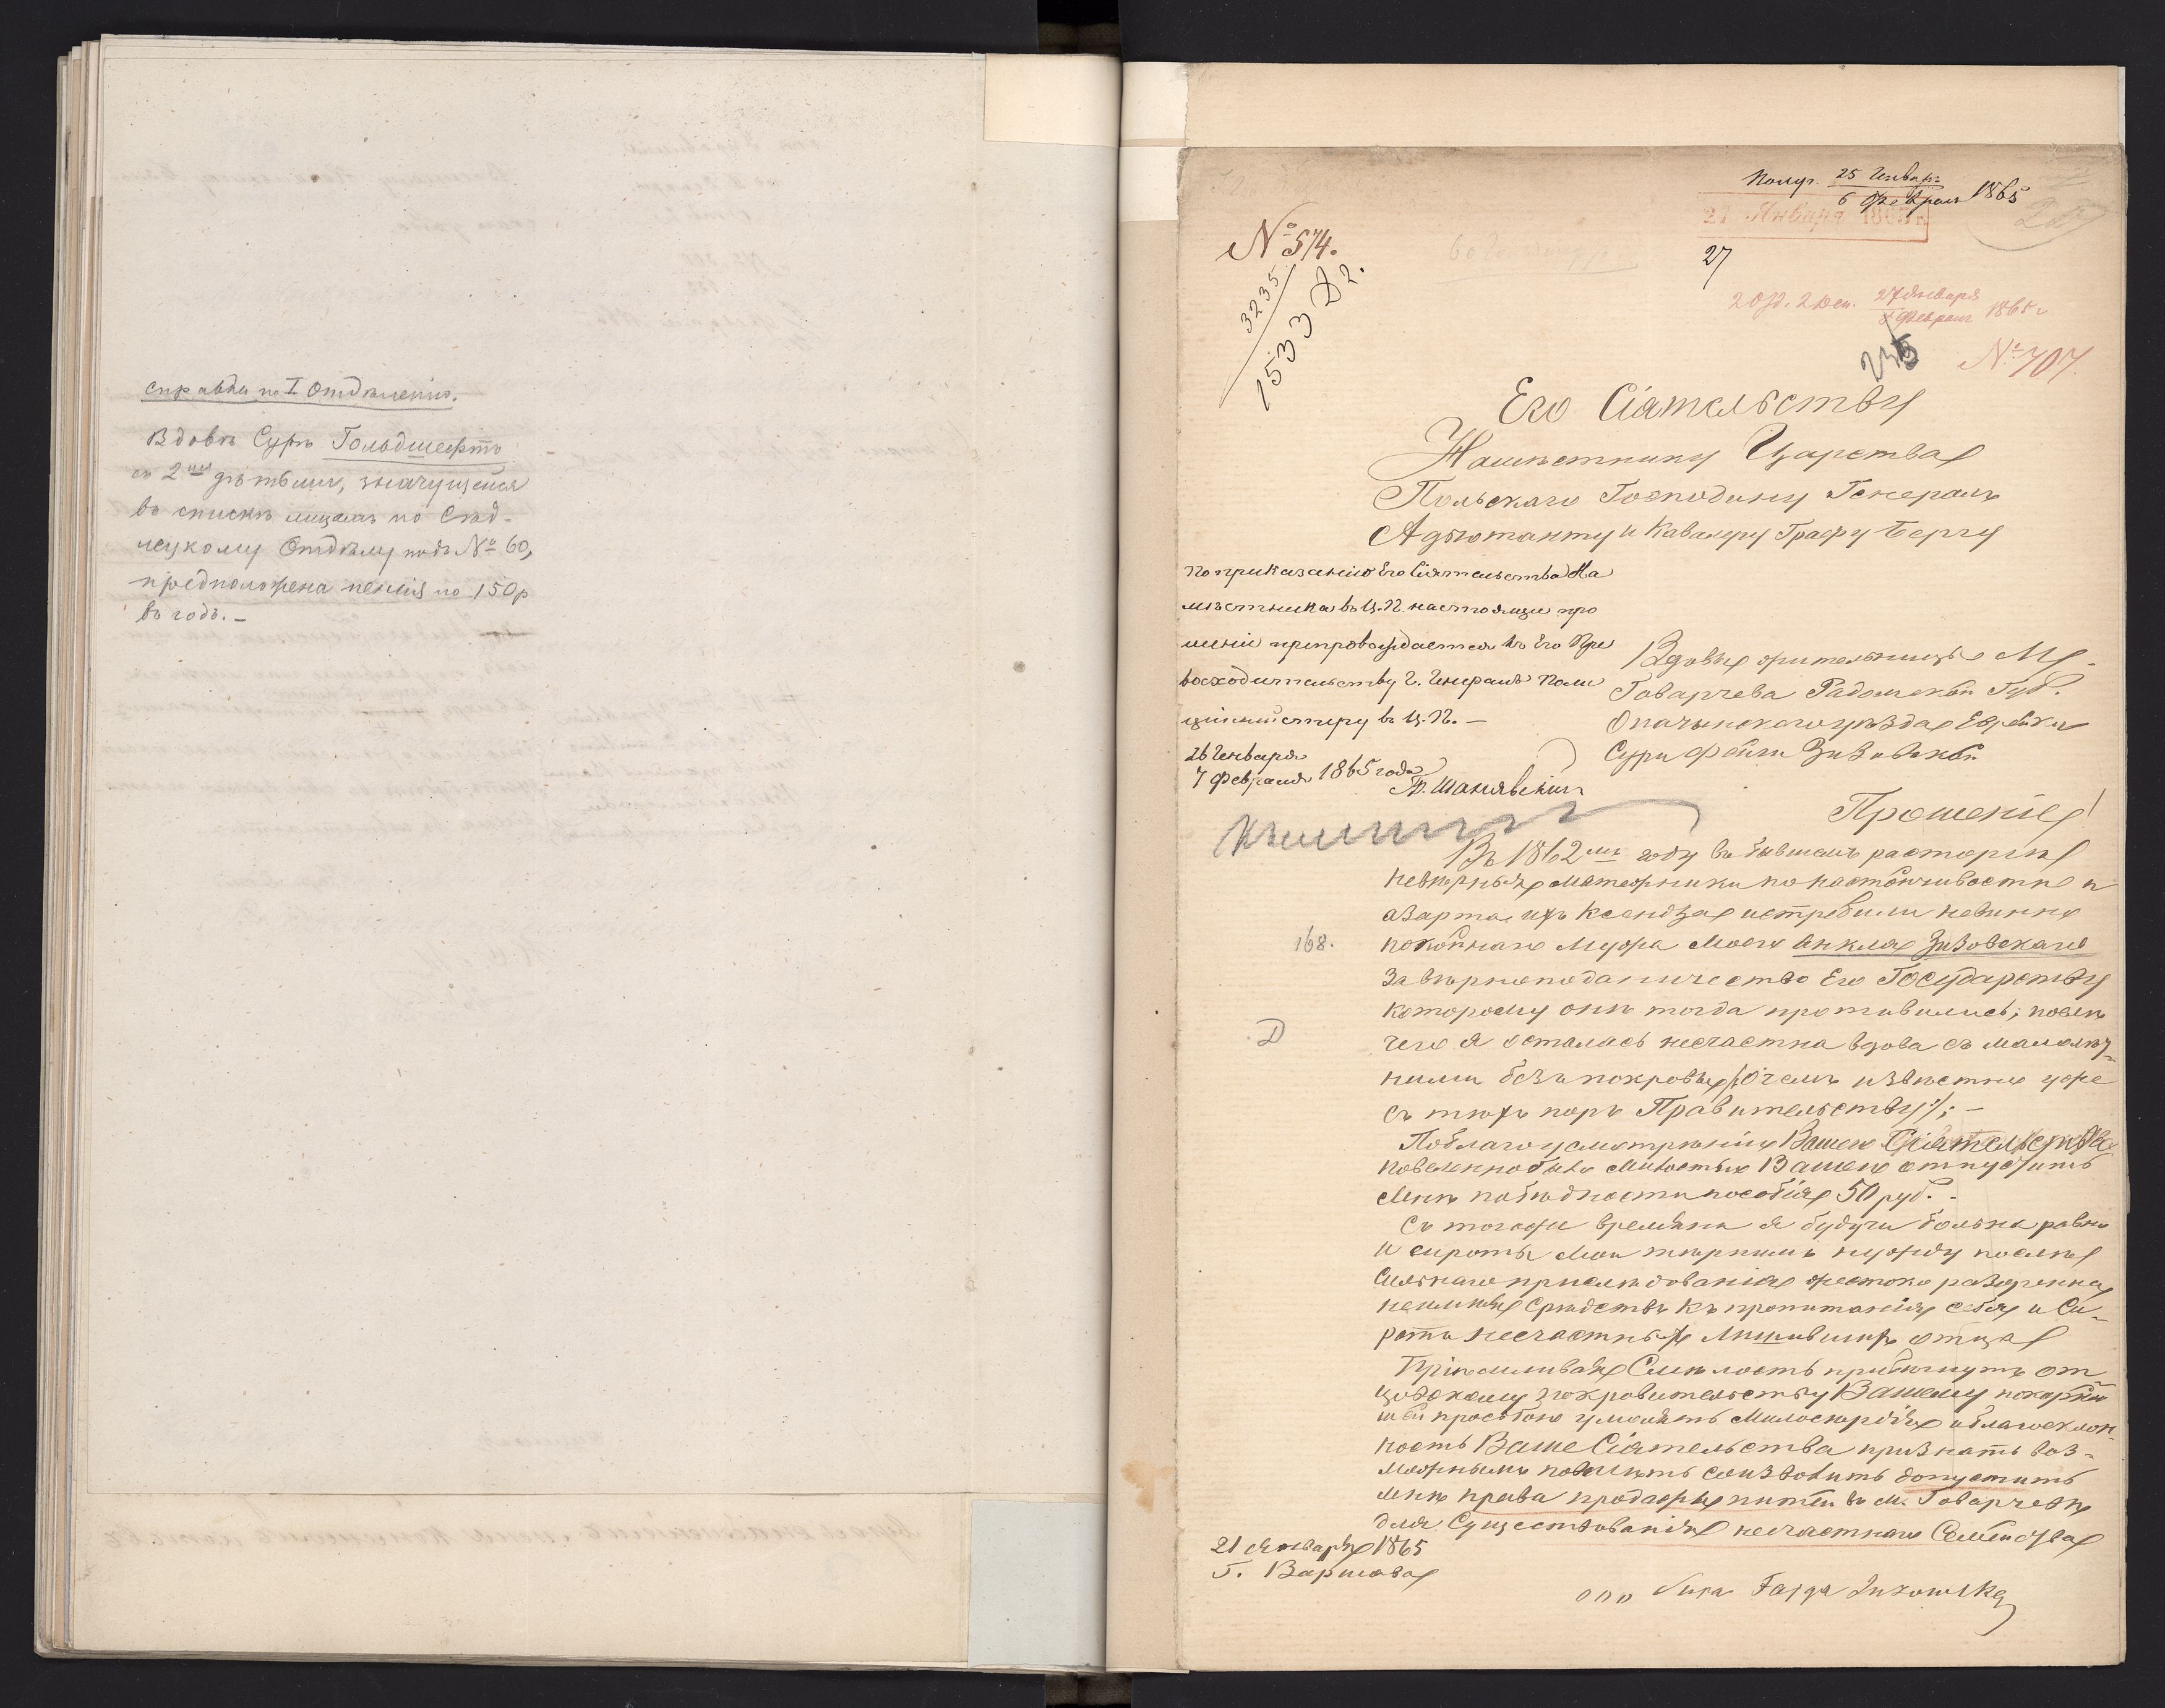 Справка по I Отдѣленію.
Вдовѣ Сурѣ Гольдшефтъ
съ 2мя дѣтьми, значущейся
въ спискѣ лицамъ по Сѣд-
лецкому Отдѣлу подъ № 60,
предположена пенсія по 150 р
въ годъ. —
Получ. 25 Января
6 Февраля 1865
27 Января 1865 г.
№ 574.
27
3235
1533 Д2.
2 Отд. 2 Дел. 27 Января
8 Февраля 1865 г
№ 707.
Его Сіятельству
Намѣстнику Царства
Польскаго Господину Генералъ
Адъютанту и Кавалеру Графу Бергу
По приказанію Его Сіятельства На
мѣстника въ Ц. П. настоящее про
шеніе препровождается къ Его Пре
восходительству Г. Генералъ Поли
ціймейстеру въ Ц. П. —
26 Января
7 Февраля 1865 года
Вдовы жительницы М.
Говарчева Радомской Губ.
Опачынскаго уѣзда Еврейки
Суры Файги Зызовской
Прошеніе!
Въ 1862мъ году въ бывшемъ расторгѣ
невѣрныхъ мятежники по настойчивости и
азарта ихъ Ксендза истребили невинно
168.
покойнаго Мужа моего Янкля Зызовскаго
За вѣрноподаничество Его Государству
которому они тогда противились; послѣ
Д
чего я осталась несчастна вдова съ малолѣт-
ними безъ покровы /: О чемъ извѣстно уже
съ тѣхъ поръ Правительству :/; —
По благоусмотрѣнію Вашего Сіятельства
повеленно было милостью Вашею отпустить
Мнѣ по бѣдности пособія 50 руб. -
Съ того же времяни я будучи больна равно
и сироты мои терпимъ нужду послѣ
Сильнаго преслѣдованія жестоко разоренна,
неимѣю средствъ къ пропитанія себя и Си-
ротъ несчастныхъ лишившихъ отца
Смѣлость прибѣгнуть от
цовскому покровительству Вашему покорнѣй
шей просьбою умолять Милосердія и благосклон-
ность Ваше Сіятельства признать воз-
можнымъ повелѣть соизволить допустить
мнѣ права продажы питей въ м. Говарчевѣ
для Существованія несчастнаго Семейства
21 Января 1865
Г. Варшава